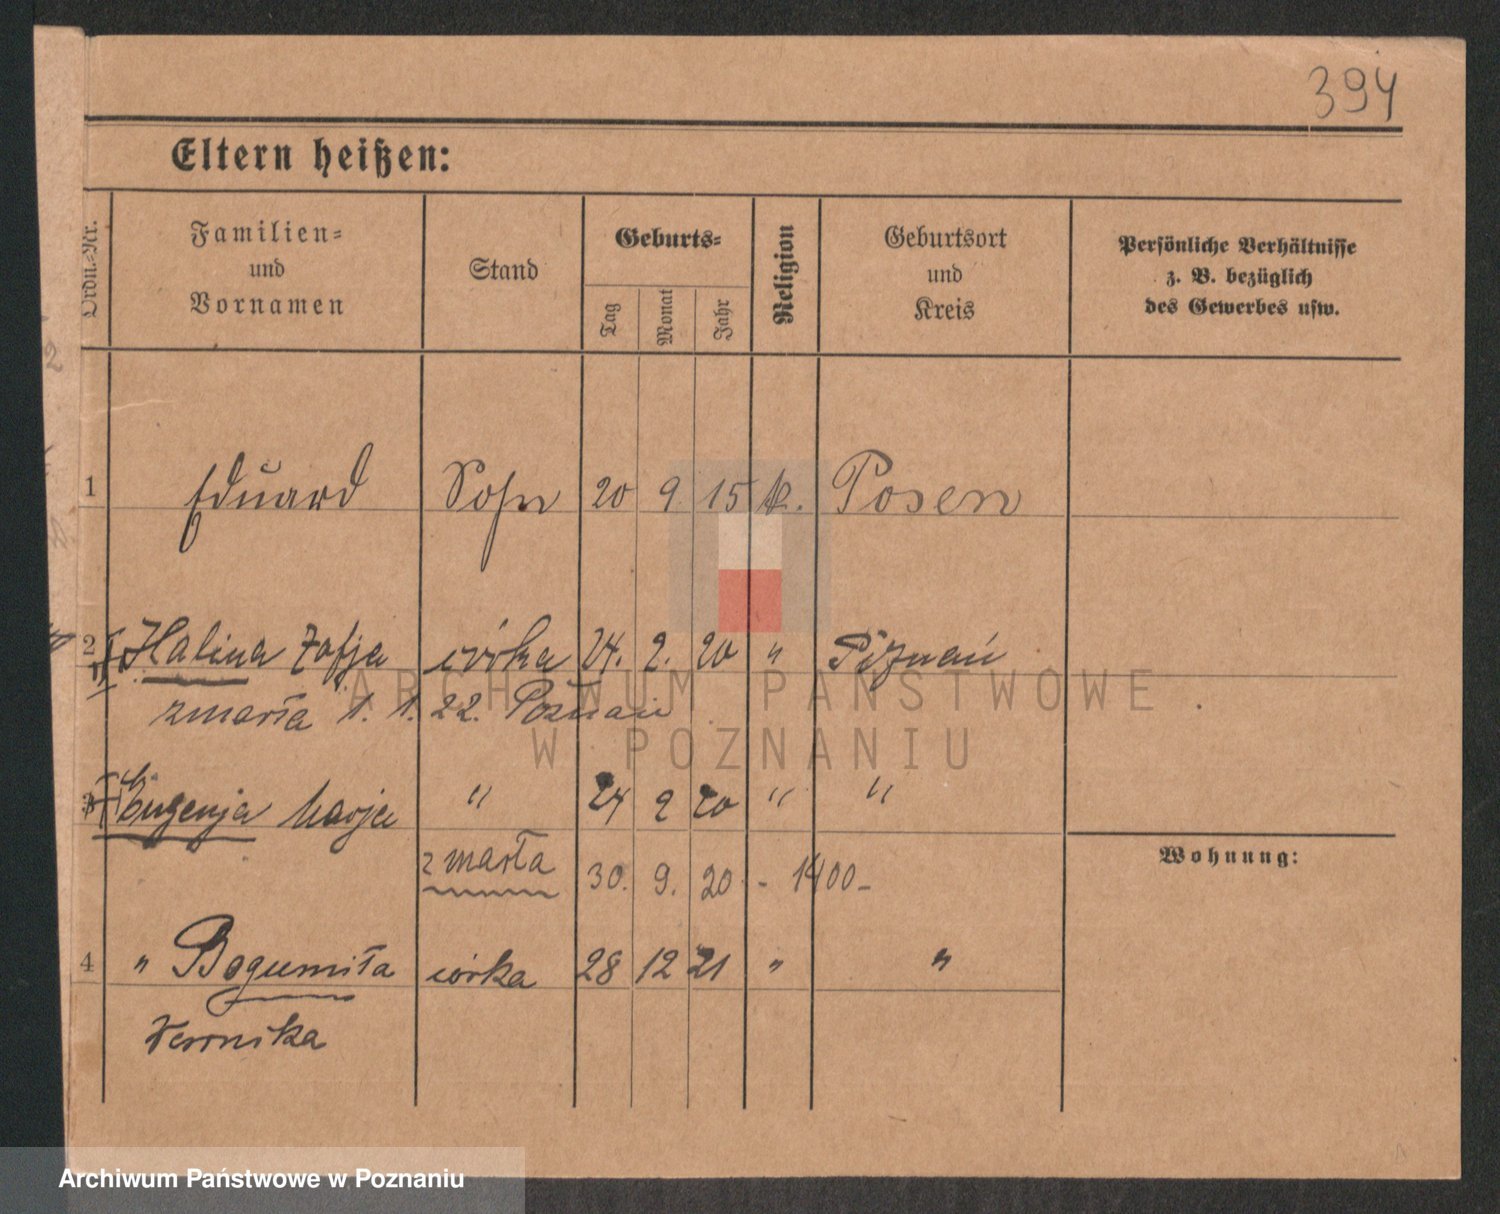 394
Eltern heißen:
Ordn.-Nr.
Familien-
und
Vornamen
Stand
Geburts-
Tag
Monat
Jahr
Religion
Geburtsort
und
Kreis
Persönliche Verhältnisse
z. B. bezüglich
des Gewerbes usw.
1 Eduard Sohn 20 9 15 k. Posen
2 Halina Zofja córka 24. 2. 20 " Poznań
zmarła 1. 1. 22. Poznań
3 Eugenja Marja " 24 2 20 " "
Wohnung:
zmarła 30. 9. 20 - 1400 -
4 " Bogumiła córka 28 12 21 " "
Weronika
ARCHIWUM PAŃSTWOWE
W POZNANIU
Archiwum Państwowe w Poznaniu